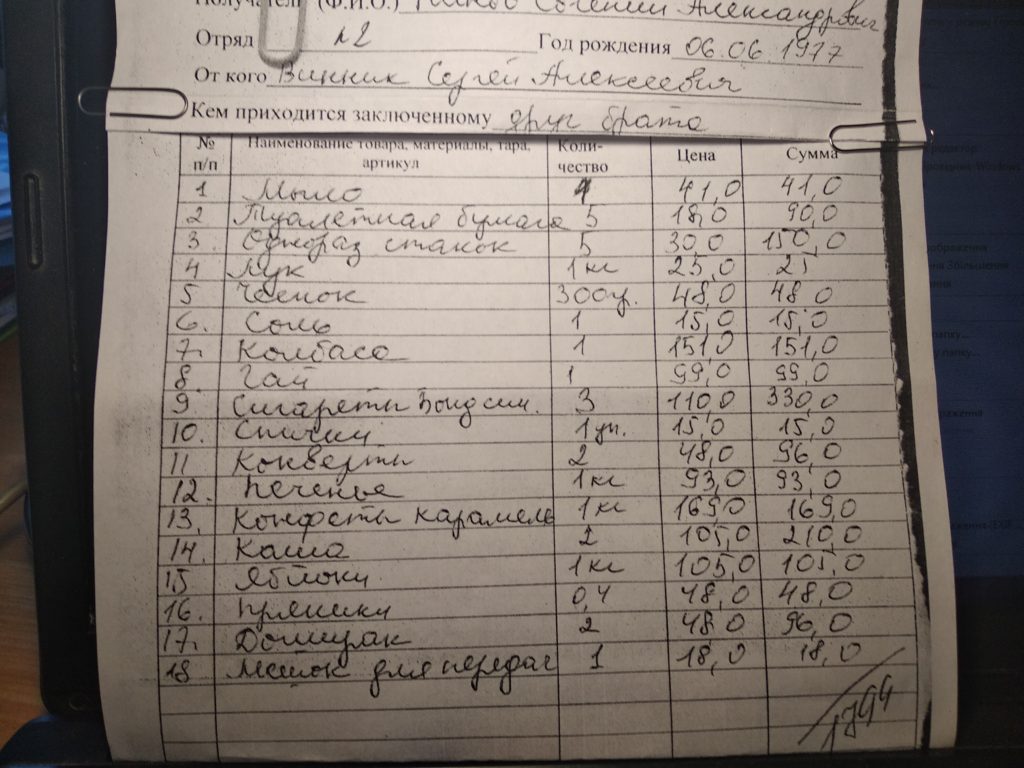 Получатель (Ф.И.О.) Евгений Александрович
Отряд №2 Год рождения 06.06.1977
От кого Винник Сергей Алексеевич
Кем приходится заключенному друг брата
№ п/п Наименование товара, материалы, тара, артикул Коли-чество Цена Сумма
1 Мыло 1 41,0 41,0
2 Туалетная бумага 5 18,0 90,0
3. Однораз станок 5 30,0 150,0
4 Лук 1кг 25,0 25
5 Чеснок 300гр. 48,0 48,0
6. Соль 1 15,0 15,0
7. Колбаса 1 151,0 151,0
8. Чай 1 99,0 99,0
9 Сигареты Бонд син. 3 110,0 330,0
10. Спички 1уп. 15,0 15,0
11 Конверты 2 48,0 96,0
12. Печенье 1кг 93,0 93,0
13. Конфеты карамель 1кг 169,0 169,0
14. Каша 2 105,0 210,0
15 Яблоки 1кг 105,0 105,0
16. Пряники 0,4 48,0 48,0
17. Доширак 2 48,0 96,0
18 Мешок для передач 1 18,0 18,0
1794